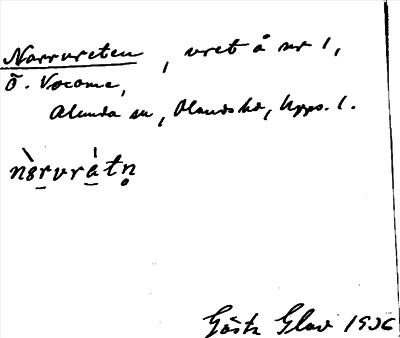 Norrvreten, vret å nr 1,
Ö. Vocome,
Alunda sn, Olands hd, Upps. l.
nòrvrátn̥
Gösta Glav 1936